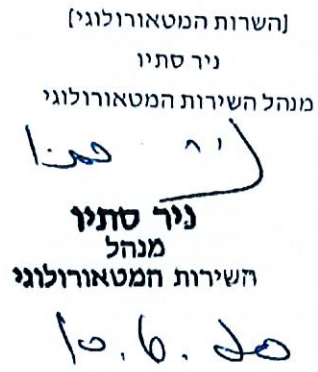 (השרות המטאורולוגי)
ניר סתיו
מנהל השירות המטאורולוגי
ניר סתיו
ניר סתיו
מנהל
השירות המטאורולוגי
10.6.20